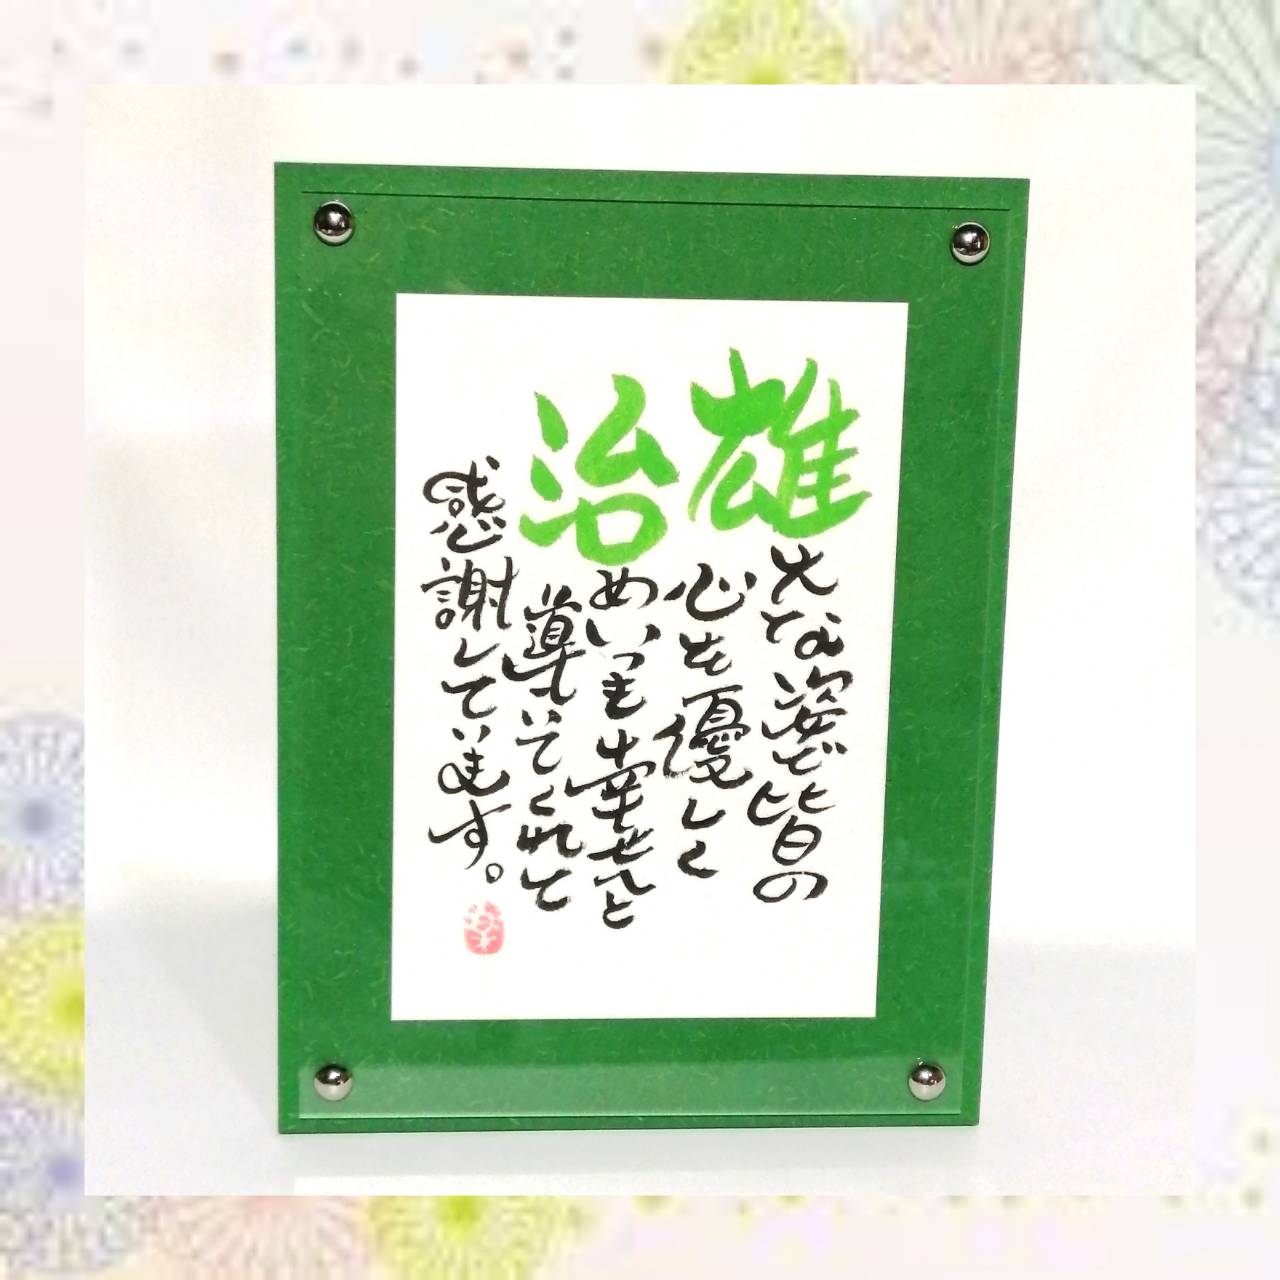 雄大な姿で皆の
心を優しく
治めいつも幸せへと
導いてくれて
感謝しています。